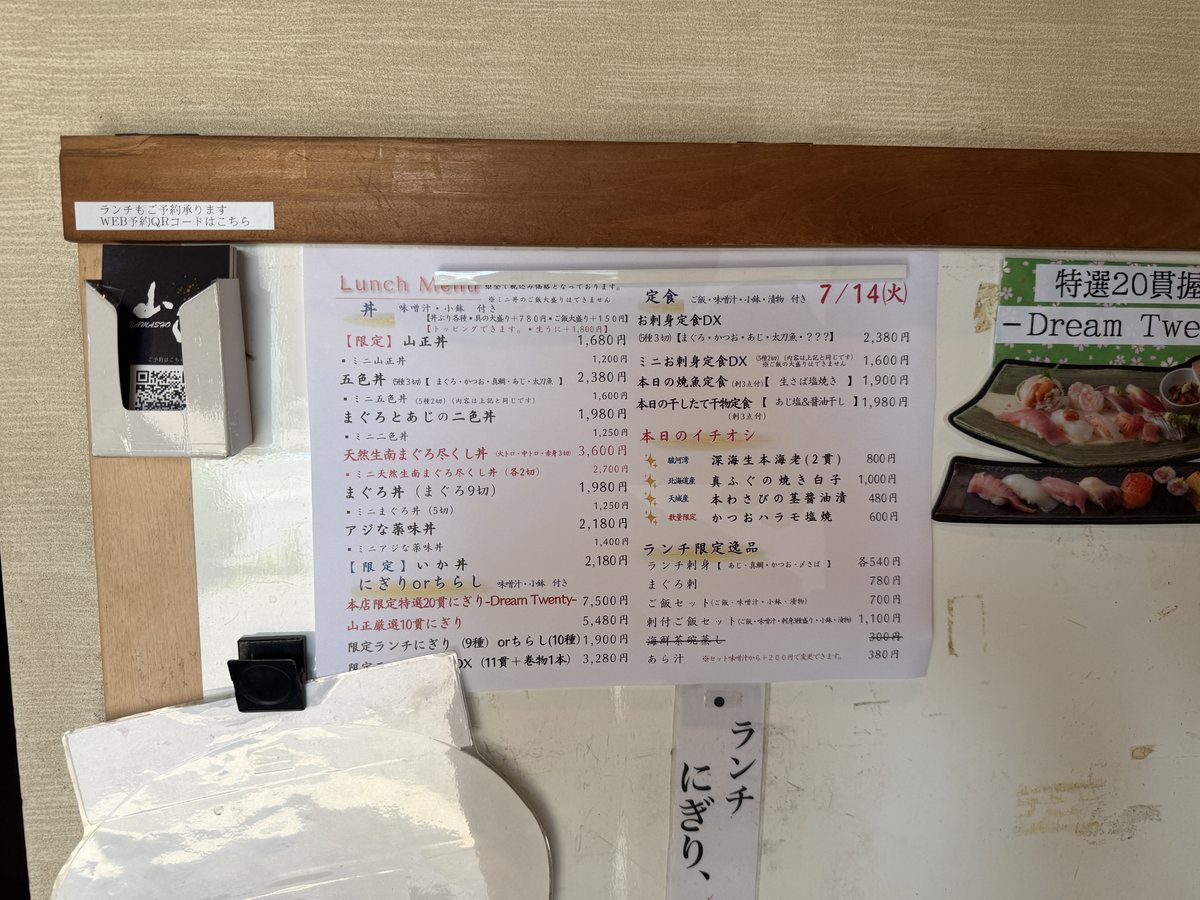 ランチもご予約承ります
WEB予約QRコードはこちら
山
YAMASHO
ご予約はこち
Lunch Menu
となっております。
※ミニ丼のご飯大盛りはできません
丼 味噌汁・小鉢 付き
【丼ぶり各種・具の大盛り+780円・ご飯大盛り+150円】
【トッピングできます。・生うに+1,800円】
【限定】山正丼 1,680円
・ミニ山正丼 1,200円
五色丼(5種3切)【まぐろ・かつお・真鯛・あじ・太刀魚】 2,380円
・ミニ五色丼(5種2切)(内容は上記と同じです) 1,600円
まぐろとあじの二色丼 1,980円
・ミニ二色丼 1,250円
天然生南まぐろ尽くし丼(大トロ・中トロ・赤身3切) 3,600円
・ミニ天然生南まぐろ尽くし丼(各2切) 2,700円
まぐろ丼(まぐろ9切) 1,980円
・ミニまぐろ丼(5切) 1,250円
アジな薬味丼 2,180円
・ミニアジな薬味丼 1,400円
【限定】いか丼 2,180円
にぎりorちらし 味噌汁・小鉢 付き
本店限定特選20貫にぎり-Dream Twenty- 7,500円
山正厳選10貫にぎり 5,480円
限定ランチにぎり(9種)orちらし(10種) 1,900円
DX(11貫+巻物1本) 3,280円
定食 ご飯・味噌汁・小鉢・漬物 付き 7/14(火)
お刺身定食DX
(5種3切)【まぐろ・かつお・あじ・太刀魚・???】 2,380円
ミニお刺身定食DX (5種2切)(内容は上記と同じです) ※ご飯の大盛りはできません 1,600円
本日の焼魚定食(刺3点付)【 生さば塩焼き 】 1,900円
本日の干したて干物定食【 あじ塩&醤油干し 】 1,980円
(刺3点付)
本日のイチオシ
駿河湾 深海生本海老(2貫) 800円
北海道産 真ふぐの焼き白子 1,000円
天城産 本わさびの茎醤油漬 480円
数量限定 かつおハラモ塩焼 600円
ランチ限定逸品
ランチ刺身【 あじ・真鯛・かつお・〆さば 】 各540円
まぐろ刺 780円
ご飯セット(ご飯・味噌汁・小鉢・漬物) 700円
刺付ご飯セット(ご飯・味噌汁・刺身3種盛り・小鉢・漬物) 1,100円
海鮮茶碗蒸し 300円
あら汁 ※セット味噌汁から+200円で変更できます。 380円
特選20貫握
-Dream Twe
ランチ
にぎり、